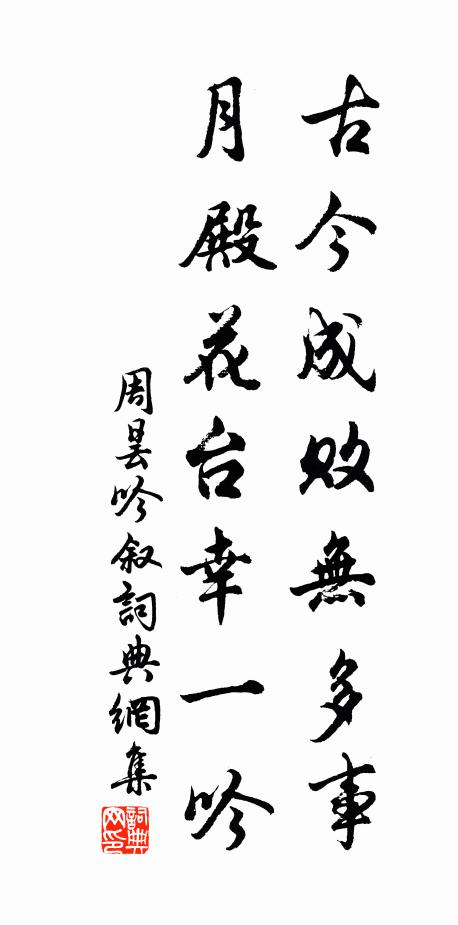 古今成敗無多事
月殿花台幸一吟
周昙吟叙詞典網集
詞典網印